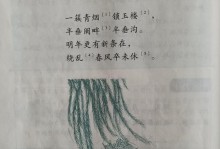 一簇青烟[1]锁玉楼[2]，
半垂阑畔[3]半垂沟。
明年更有新条在，
绕乱[4]春风卒未休[5]。